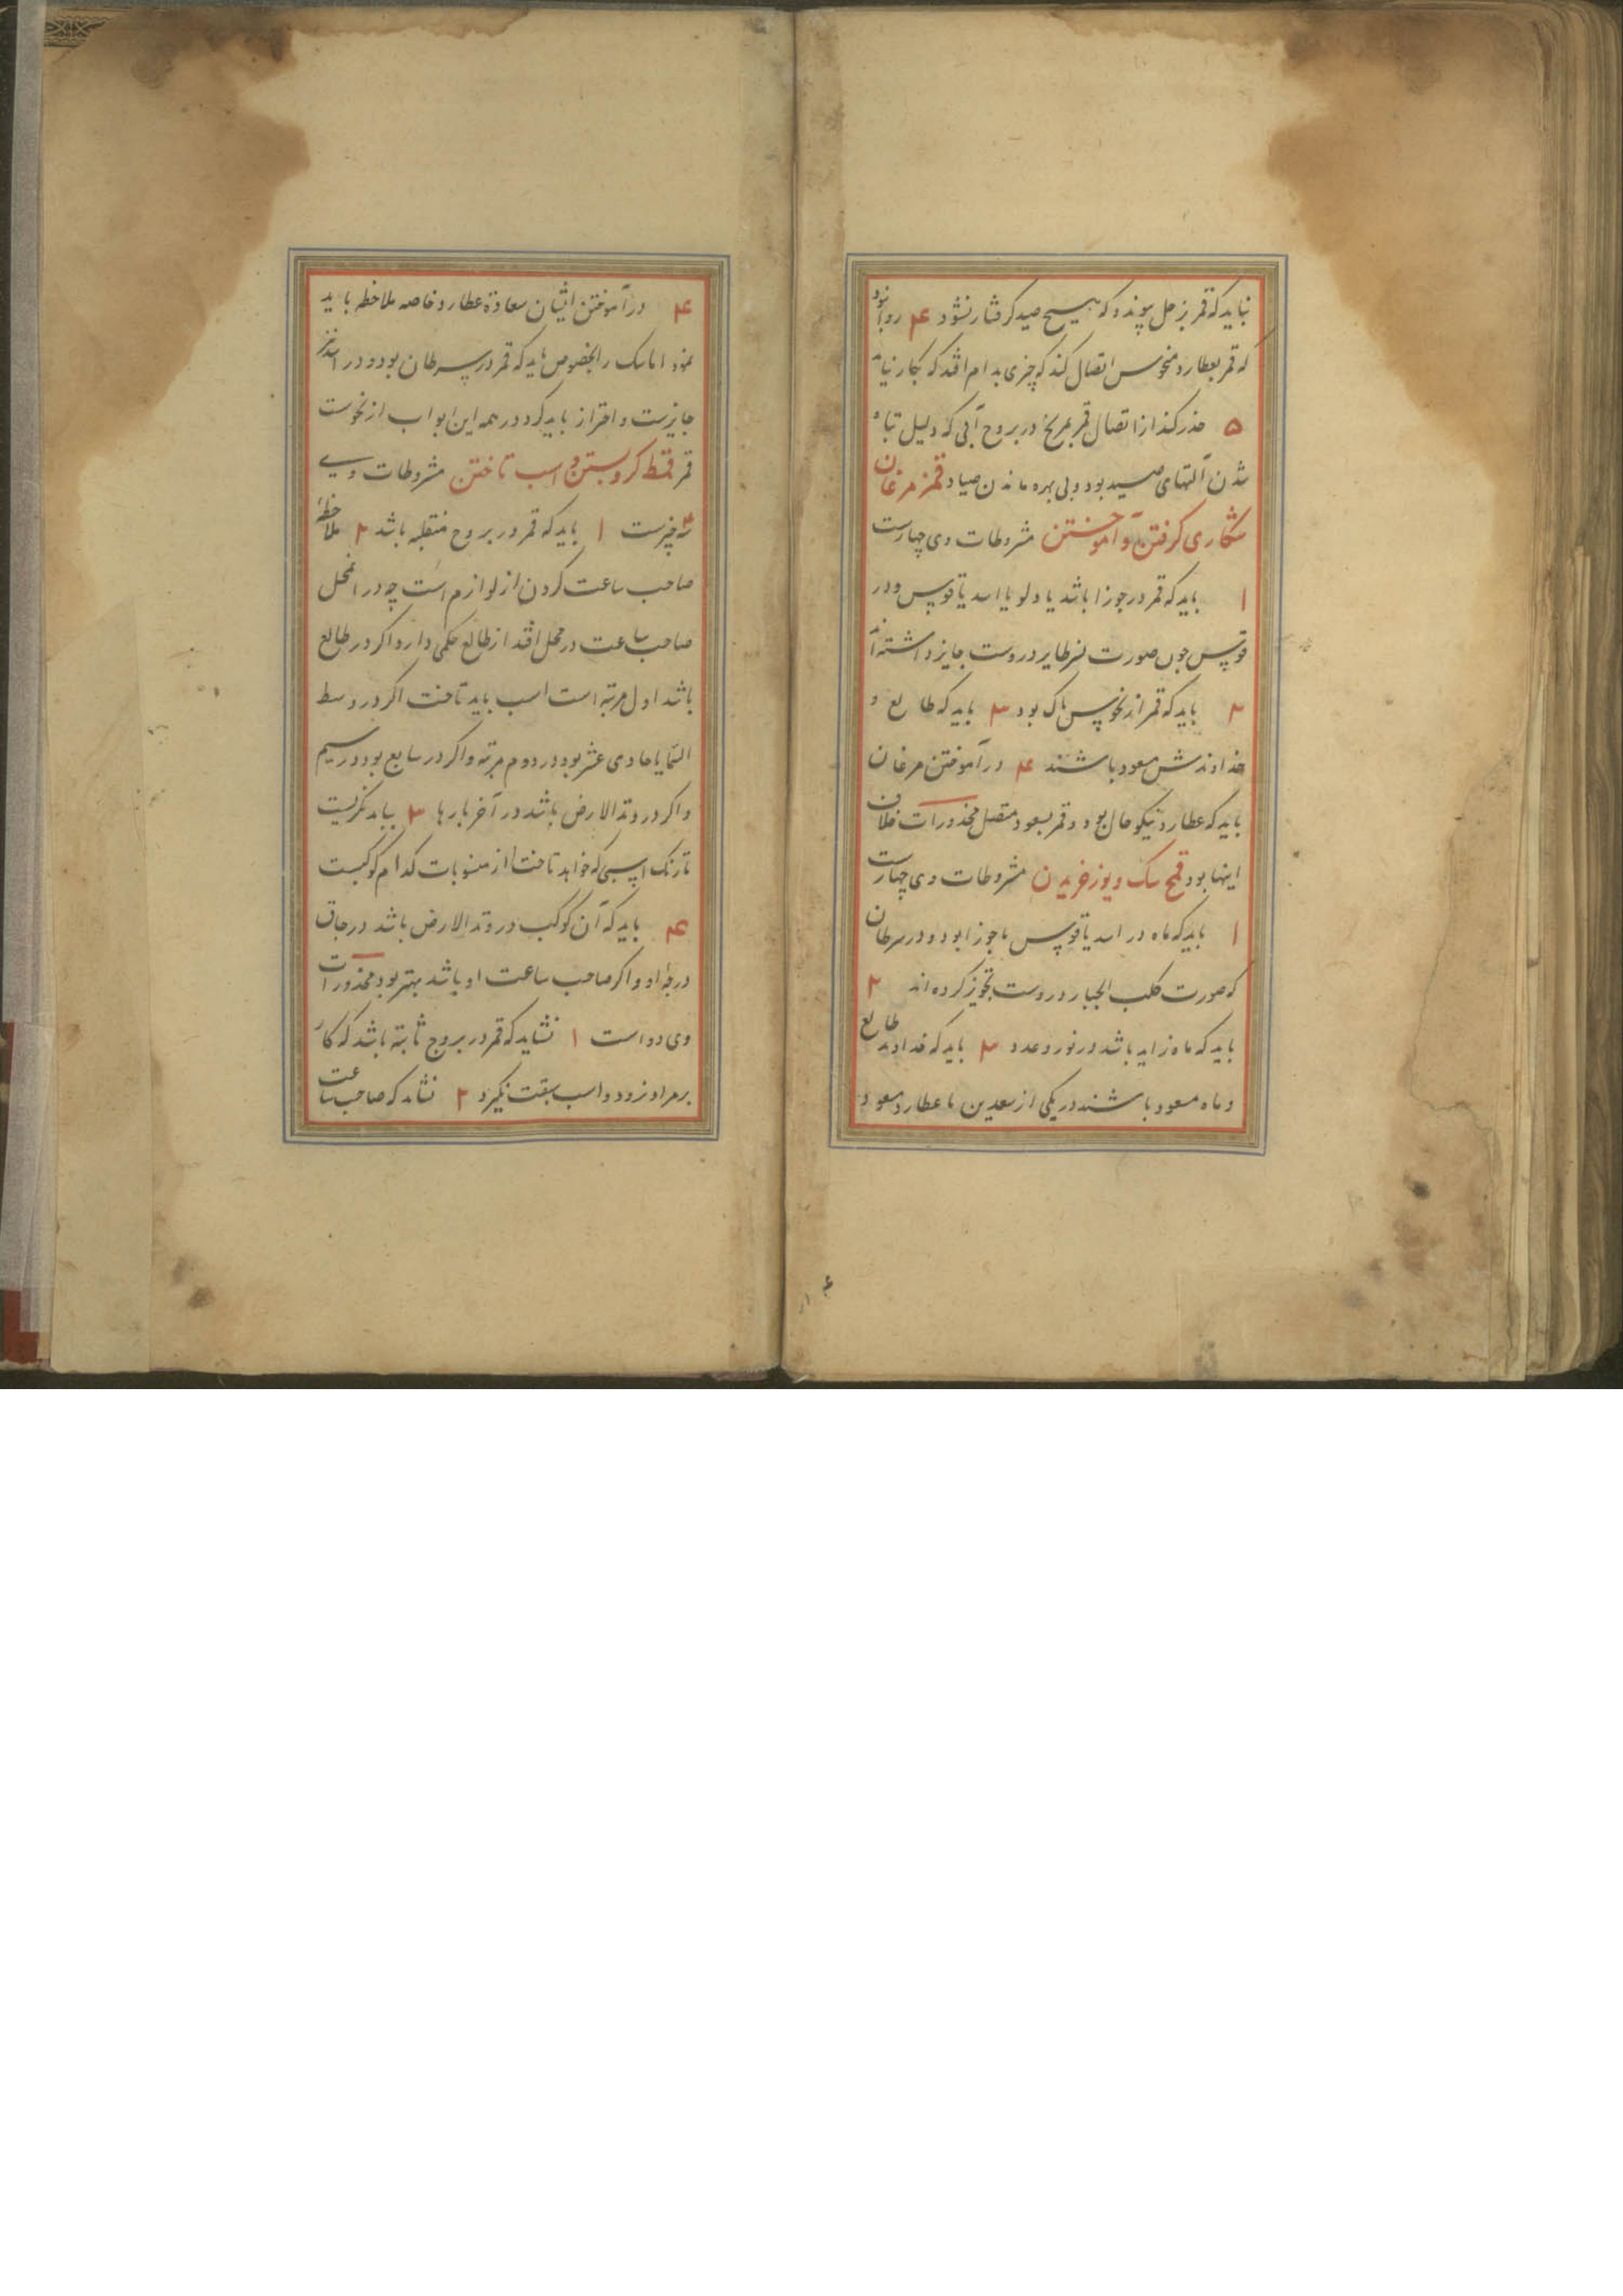 نباید که قمر بزحل پیوندد که هیچ صید گرفتار نشود ۴ روا نبود
که قمر بعطارد منحوس اتصال کند که چیزی بدام افتد که بکار نیاید
۵ حذر کند از اتصال قمر بمریخ در بروج آبی که دلیل تباه
شدن آلتهای صید بود و بی بهره ماندن صیاد قمز مرغان
شکاری گرفتن و آموختن مشروطات وی چهارست
۱ باید که قمر در جوزا باشد یا دلو یا اسد یا قوس و در
قوس چون صورت نسر طایر دروست جایز داشته‌اند
۲ باید که قمر از نحوس پاک بود ۳ باید که طالع و
خداوندش مسعود باشند ۴ در آموختن مرغان
باید که عطارد نیکو حال بود و قمر بسعود متصل محذورات خلاف
اینها بود قمح سک و یوز خریدن مشروطات وی چهارست
۱ باید که ماه در اسد یا قوس یا جوزا بود و در سرطان
که صورت کلب الجبار دروست تجویز کرده‌اند ۲
باید که ماه زاید باشد در نور و عدد ۳ باید که خداوند طالع
و ماه مسعود باشند در یکی از سعدین یا عطارد مسعود
۴ در آموختن ایشان سعادة عطارد خاصه ملاحظه باید
نمود اما سک را بخصوص باید که قمر در سرطان بود و در اسد نیز
جایزست و احتراز باید کرد در همه این ابواب از نحوست
قمر قمط کرو بستن و اسب تاختن مشروطات وی
۴ چیزست ۱ باید که قمر در بروج منقلبه باشد ۲ ملاحظه
صاحب ساعت کردن از لوازم است چه در انمحل
صاحب ساعت در محل افتد از طالع حکمی دارد اکر در طالع
باشد اول مرتبه است اسب باید تاخت اکر در وسط
السما یا حادی عشر بود در دوم مرتبه و اکر در سابع بود در سیم
و اکر در وتد الارض باشد در آخر بارها ۳ بباید نکریست
تا رنک اسبی که خواهد تاخت از منسوبات کدام کوکبست
۴ باید که آن کوکب در وتد الارض باشد در حاق
درجۀ او و اکر صاحب ساعت او باشد بهتر بود محذورات
وی دو است ۱ نشاید که قمر در بروج ثابته باشد که کار
بر مراد نرود و اسب سبقت نکیرد ۲ نشاید که صاحب ساعت